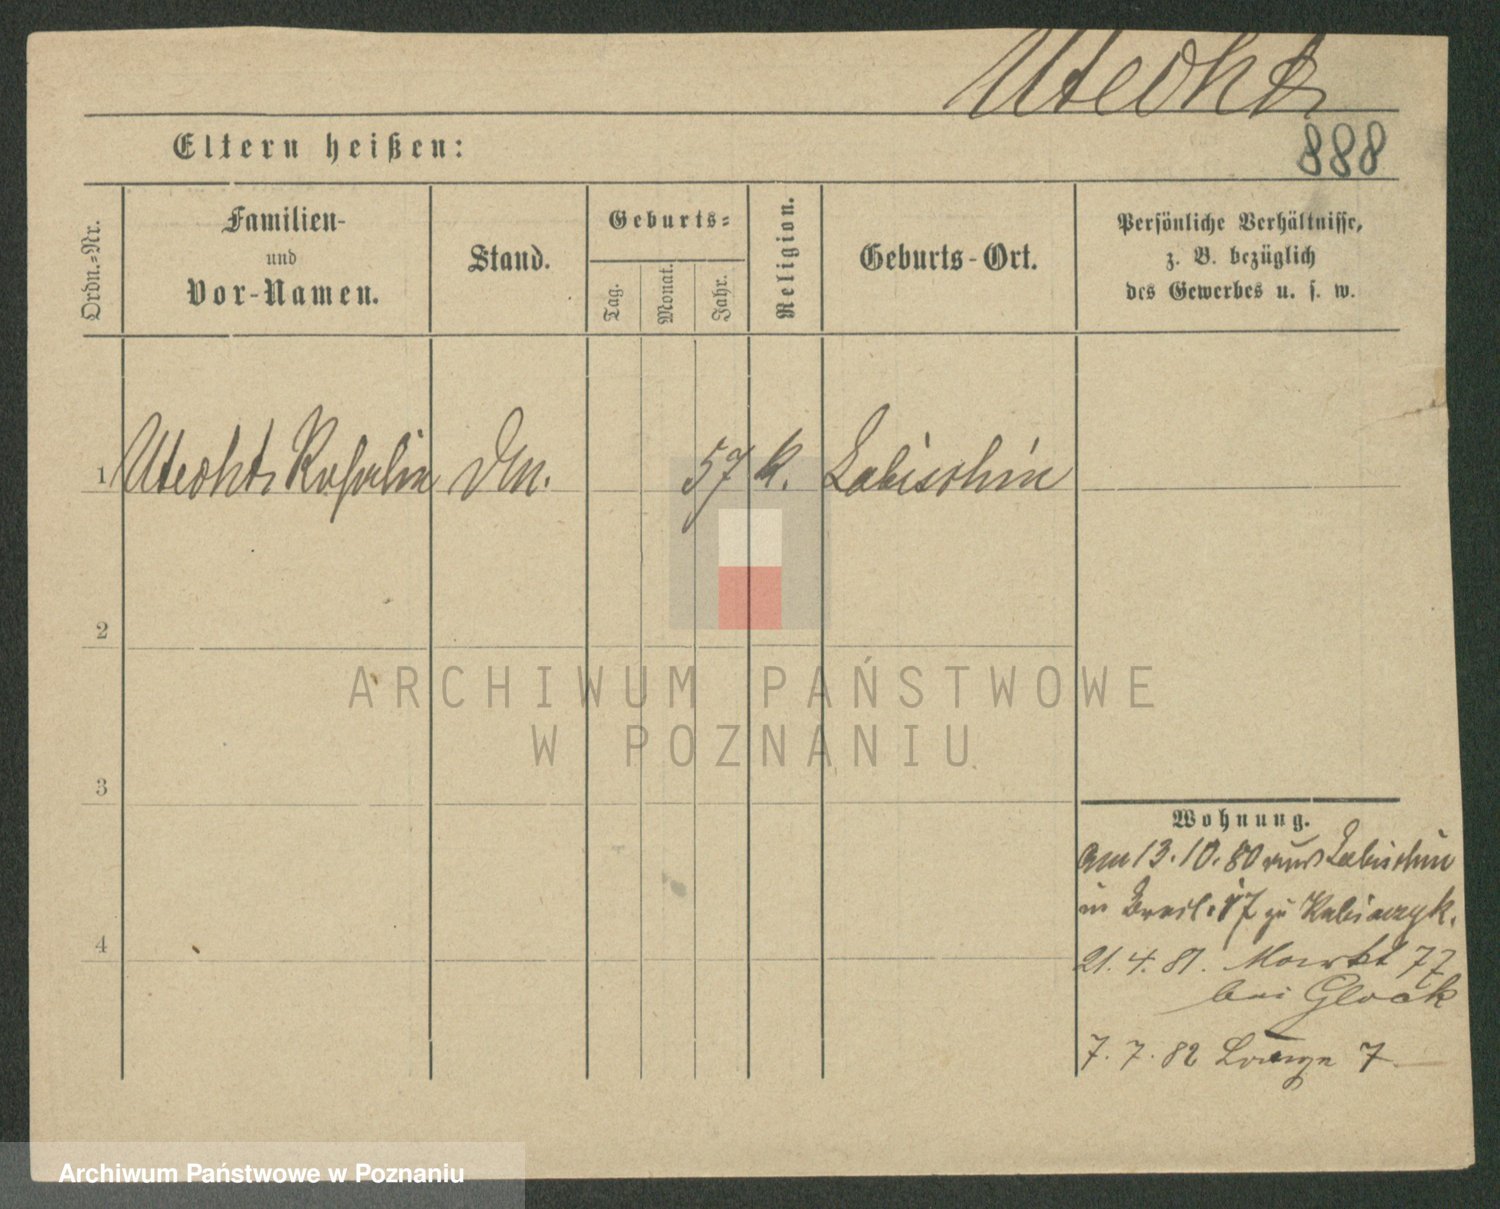 Utecht
888
Eltern heißen:
Ordn.-Nr.
Familien-
und
Vor-Namen.
Stand.
Geburts-
Tag.
Monat.
Jahr.
Religion.
Geburts-Ort.
Persönliche Verhältnisse,
z. B. bezüglich
des Gewerbes u. s. w.
1 Utecht, Rosalie 57 k. Labischin
2
ARCHIWUM PAŃSTWOWE
W POZNANIU
3
Wohnung.
am 13.10.80 aus Labischin
in Bresl. 17 zu
4
21.4.81. Markt 77
bei Glock
7.7.82 Lange 7
Archiwum Państwowe w Poznaniu